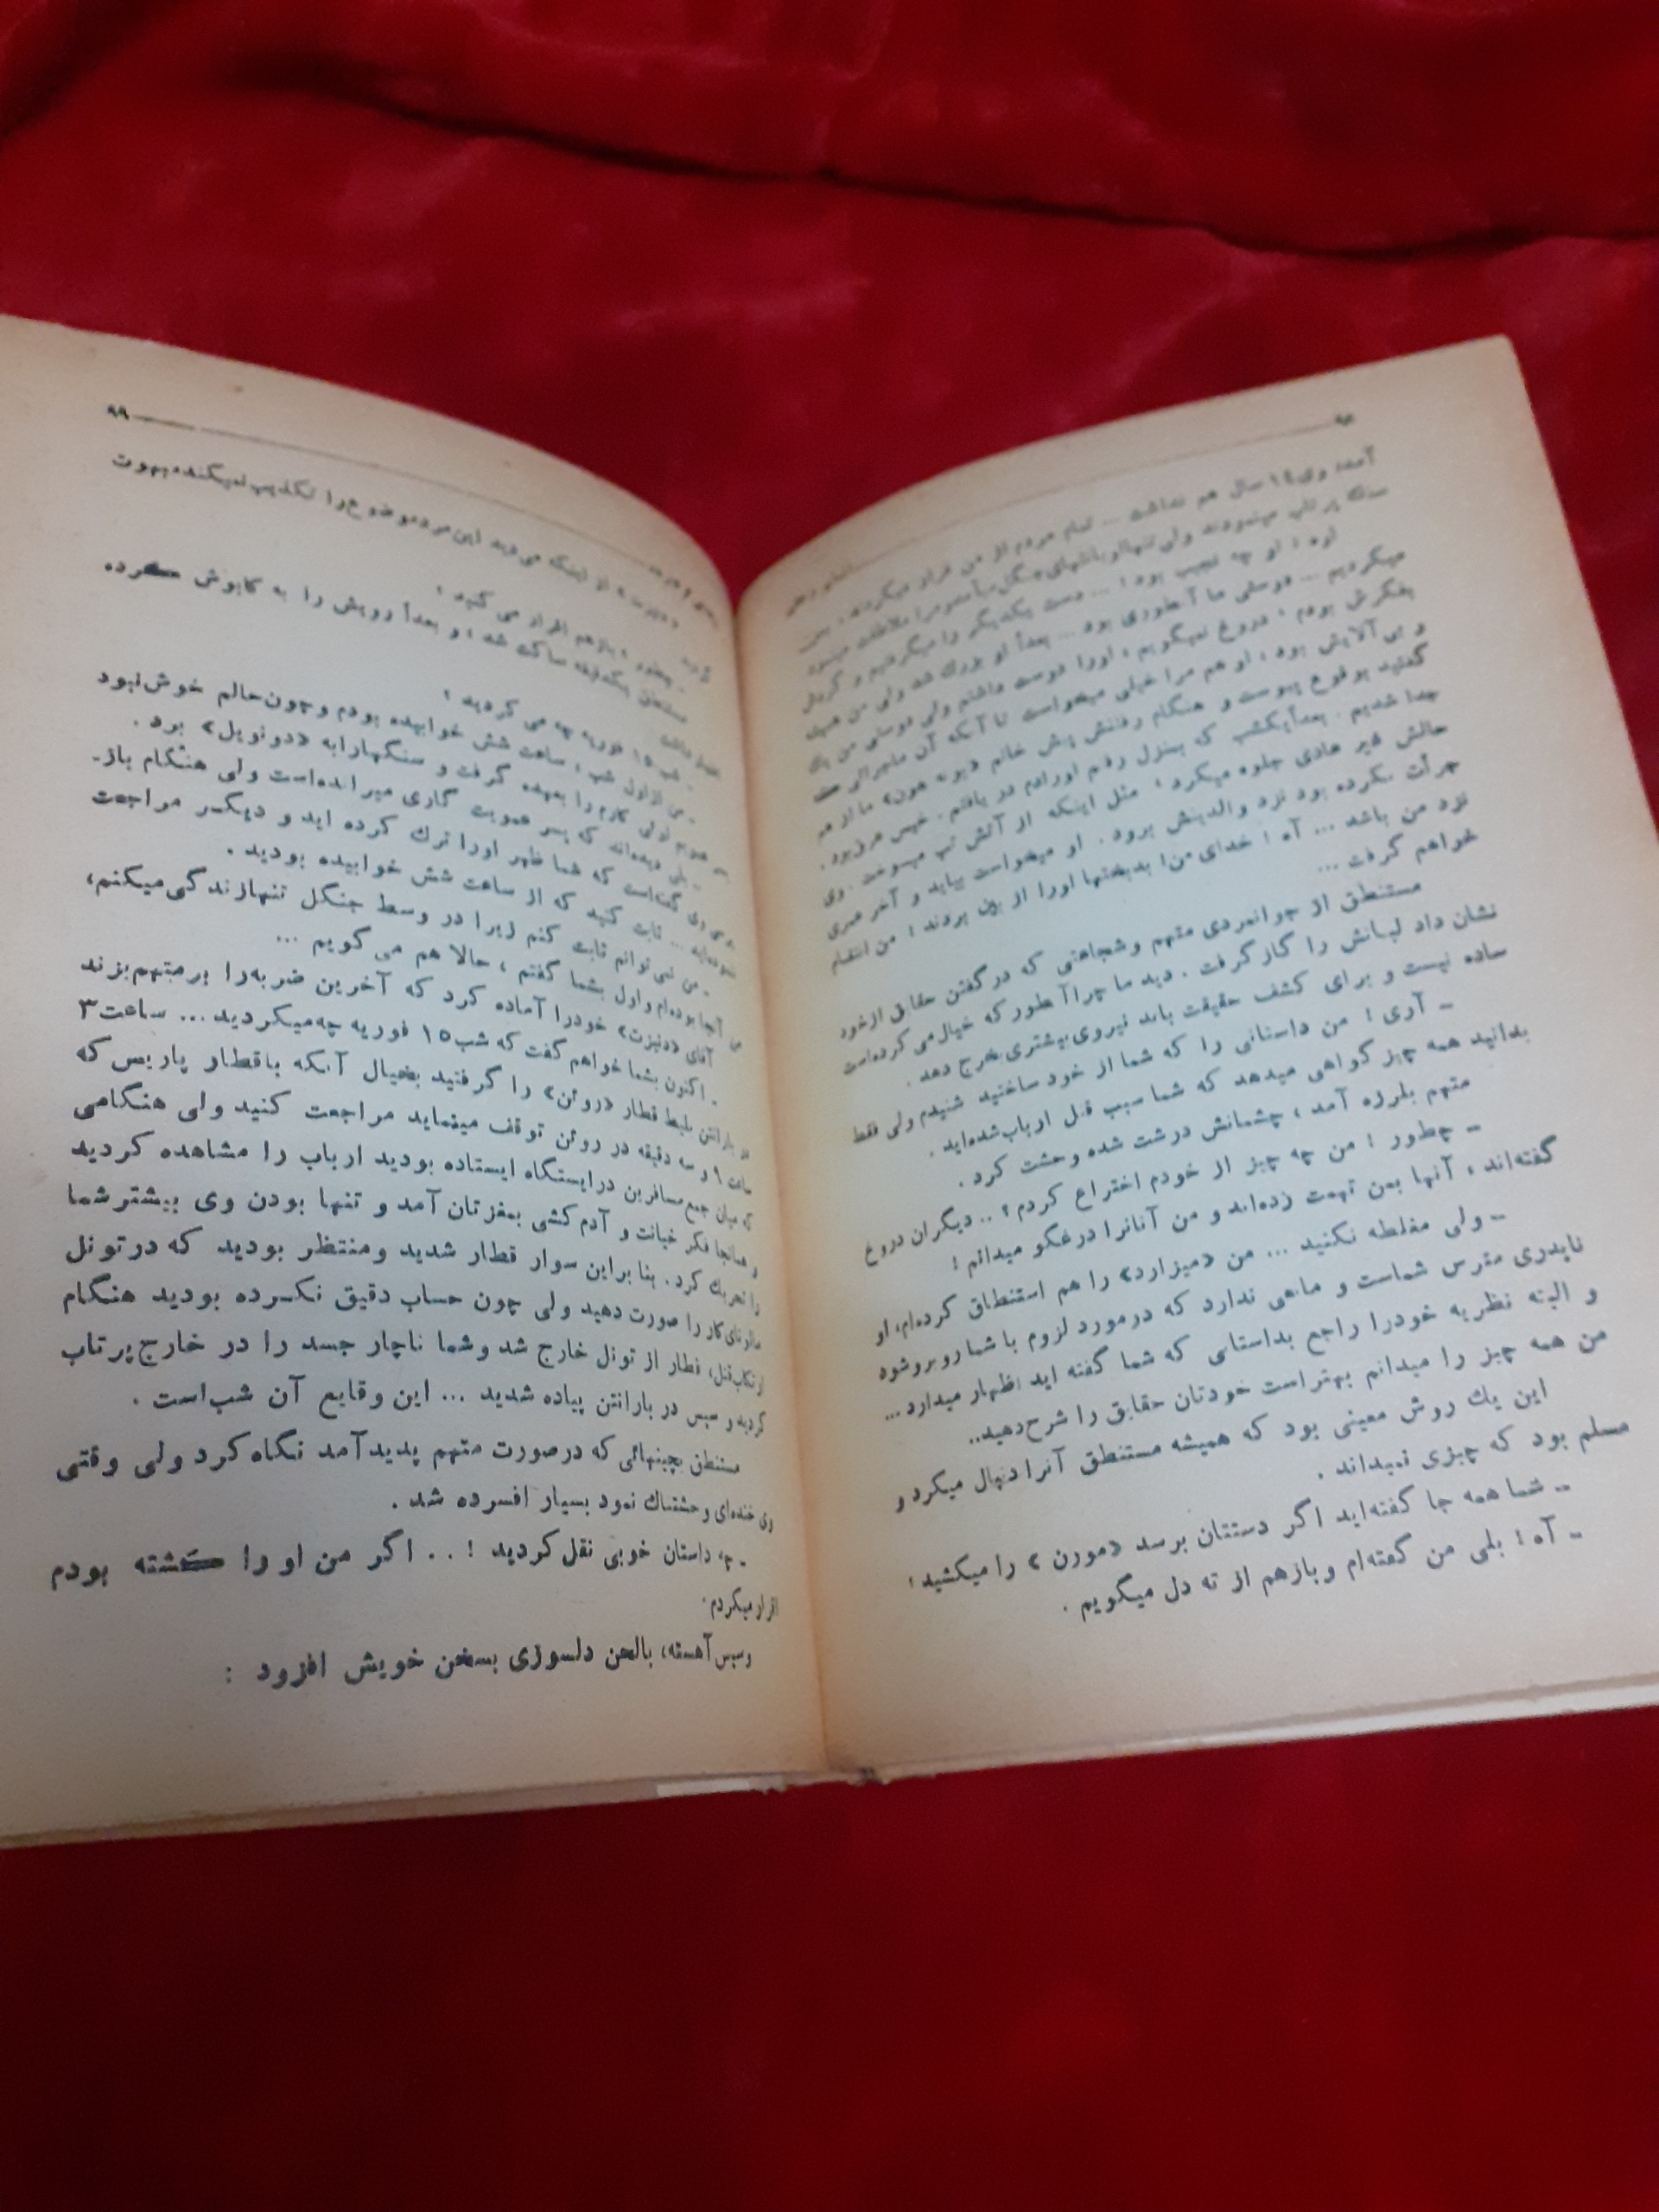 ۹۸
آمد، وی ۱۴ سال هم نداشت ... تمام مردم از من فرار میکردند، بمن
سنگ پرتاب مینمودند ولی تنها او بانتهای جنگل میآمد و مرا ملاقات مینمود
اوه ! او چه نجیب بود ! ... دست یکدیگر را میگرفتیم و گردش
میکردیم ... دوستی ما آنطوری بود ... بعداً او بزرگ شد ولی من همیشه
بفکرش بودم ، دروغ نمیگویم ، اورا دوست داشتم ولی دوستی من پاک
و بی آلایش بود ، او هم مرا خیلی میخواست تا آنکه آن ماجرائی که
گفتید بوقوع پیوست و هنگام رفتنش پیش خانم «بونه هون» ما از هم
جدا شدیم . بعداً یکشب که بمنزل رفتم اورا دم در یافتم . خیس عرق بود .
حالش غیر عادی جلوه میکرد ، مثل اینکه از آتش تب میسوخت . وی
جرأت نکرده بود نزد والدینش برود . او میخواست بیاید و آخر عمری
نزد من باشد ... آه ! خدای من! بدبختها اورا از بین بردند ! من انتقام
خواهم گرفت ...
مستنطق از جوانمردی متهم وشجاعتی که در گفتن حقایق ازخود
نشان داد لبانش را گاز گرفت . دید ماجرا آنطور که خیال می کرده است
ساده نیست و برای کشف حقیقت باید نیروی بیشتری بخرج دهد .
ـ آری ! من داستانی را که شما از خود ساختید شنیدم ولی فقط
بدانید همه چیز گواهی میدهد که شما سبب قتل ارباب شده‌اید .
متهم بلرزه آمد ، چشمانش درشت شده وحشت کرد .
ـ چطور ! من چه چیز از خودم اختراع کردم؟ .. دیگران دروغ
گفته‌اند ، آنها بمن تهمت زده‌اند و من آنانرا درغگو میدانم !
ـ ولی مغلطه نکنید ... من «میزارد» را هم استنطاق کرده‌ام، او
ناپدری مترس شماست و مانعی ندارد که درمورد لزوم با شما روبروشود
و البته نظریه خودرا راجع بداستانی که شما گفته اید اظهار میدارد ...
من همه چیز را میدانم بهتراست خودتان حقایق را شرح دهید..
این یك روش معینی بود که همیشه مستنطق آنرا دنبال میکرد و
مسلم بود که چیزی نمیداند .
ـ شما همه جا گفته‌اید اگر دستتان برسد «مورن » را میکشید ؛
ـ آه ! بلی من گفته‌ام وبازهم از ته دل میگویم .
۹۹
«دنیزت» از اینکه می دید این مرد موضوع را تکذیب نمیکند مبهوت
گردید .
ـ چطور ، بازهم اقرار می کنید ؛
مستنطق یکدقیقه ساکت شد ، و بعداً رویش را به کابوش کرده
اظهار داشت
ـ شب ۱۵ فوریه چه می کردید ؛
ـ من از اول شب ، ساعت شش خوابیده بودم و چون حالم خوش نبود
کارم را بعهده گرفت و سنگهارا به «دونویل» برد .
ـ بلی دیده‌اند که پسر عمویت گاری میرانده‌است ولی هنگام باز-
پرسی وی گفته‌است که شما ظهر اورا ترك کرده اید و دیگر مراجعت
ننموده‌اید ... ثابت کنید که از ساعت شش خوابیده بودید .
ـ من نمی توانم ثابت کنم زیرا در وسط جنگل تنها زندگی میکنم،
من آنجا بوده‌ام و اول بشما گفتم ، حالا هم می گویم ...
آقای «دنیزت» خودرا آماده کرد که آخرین ضربه‌را برمتهم بزند
ـ اکنون بشما خواهم گفت که شب ۱۵ فوریه چه میکردید ... ساعت ۳
در بارانتن بلیط قطار «روئن» را گرفتید بخیال آنکه باقطار پاریس که
ساعت ۹ و سه دقیقه در روئن توقف مینماید مراجعت کنید ولی هنگامی
که میان جمع مسافرین درایستگاه ایستاده بودید ارباب را مشاهده کردید
و همانجا فکر خیانت و آدم کشی بمغزتان آمد و تنها بودن وی بیشترشما
را تحریك کرد. بنا براین سوار قطار شدید ومنتظر بودید که درتونل
مالونای کار را صورت دهید ولی چون حساب دقیق نکرده بودید هنگام
ارتکاب قتل، قطار از تونل خارج شد وشما ناچار جسد را در خارج پرتاب
کردید و سپس در بارانتن پیاده شدید ... این وقایع آن شب است .
مستنطق بچینهائی که درصورت متهم پدیدآمد نگاه کرد ولی وقتی
وی خنده‌ای وحشتناك نمود بسیار افسرده شد .
ـ چه داستان خوبی نقل کردید ! .. اگر من او را کشته بودم
اقرار میکردم .
وسپس آهسته، بالحن دلسوزی بسخن خویش افزود :